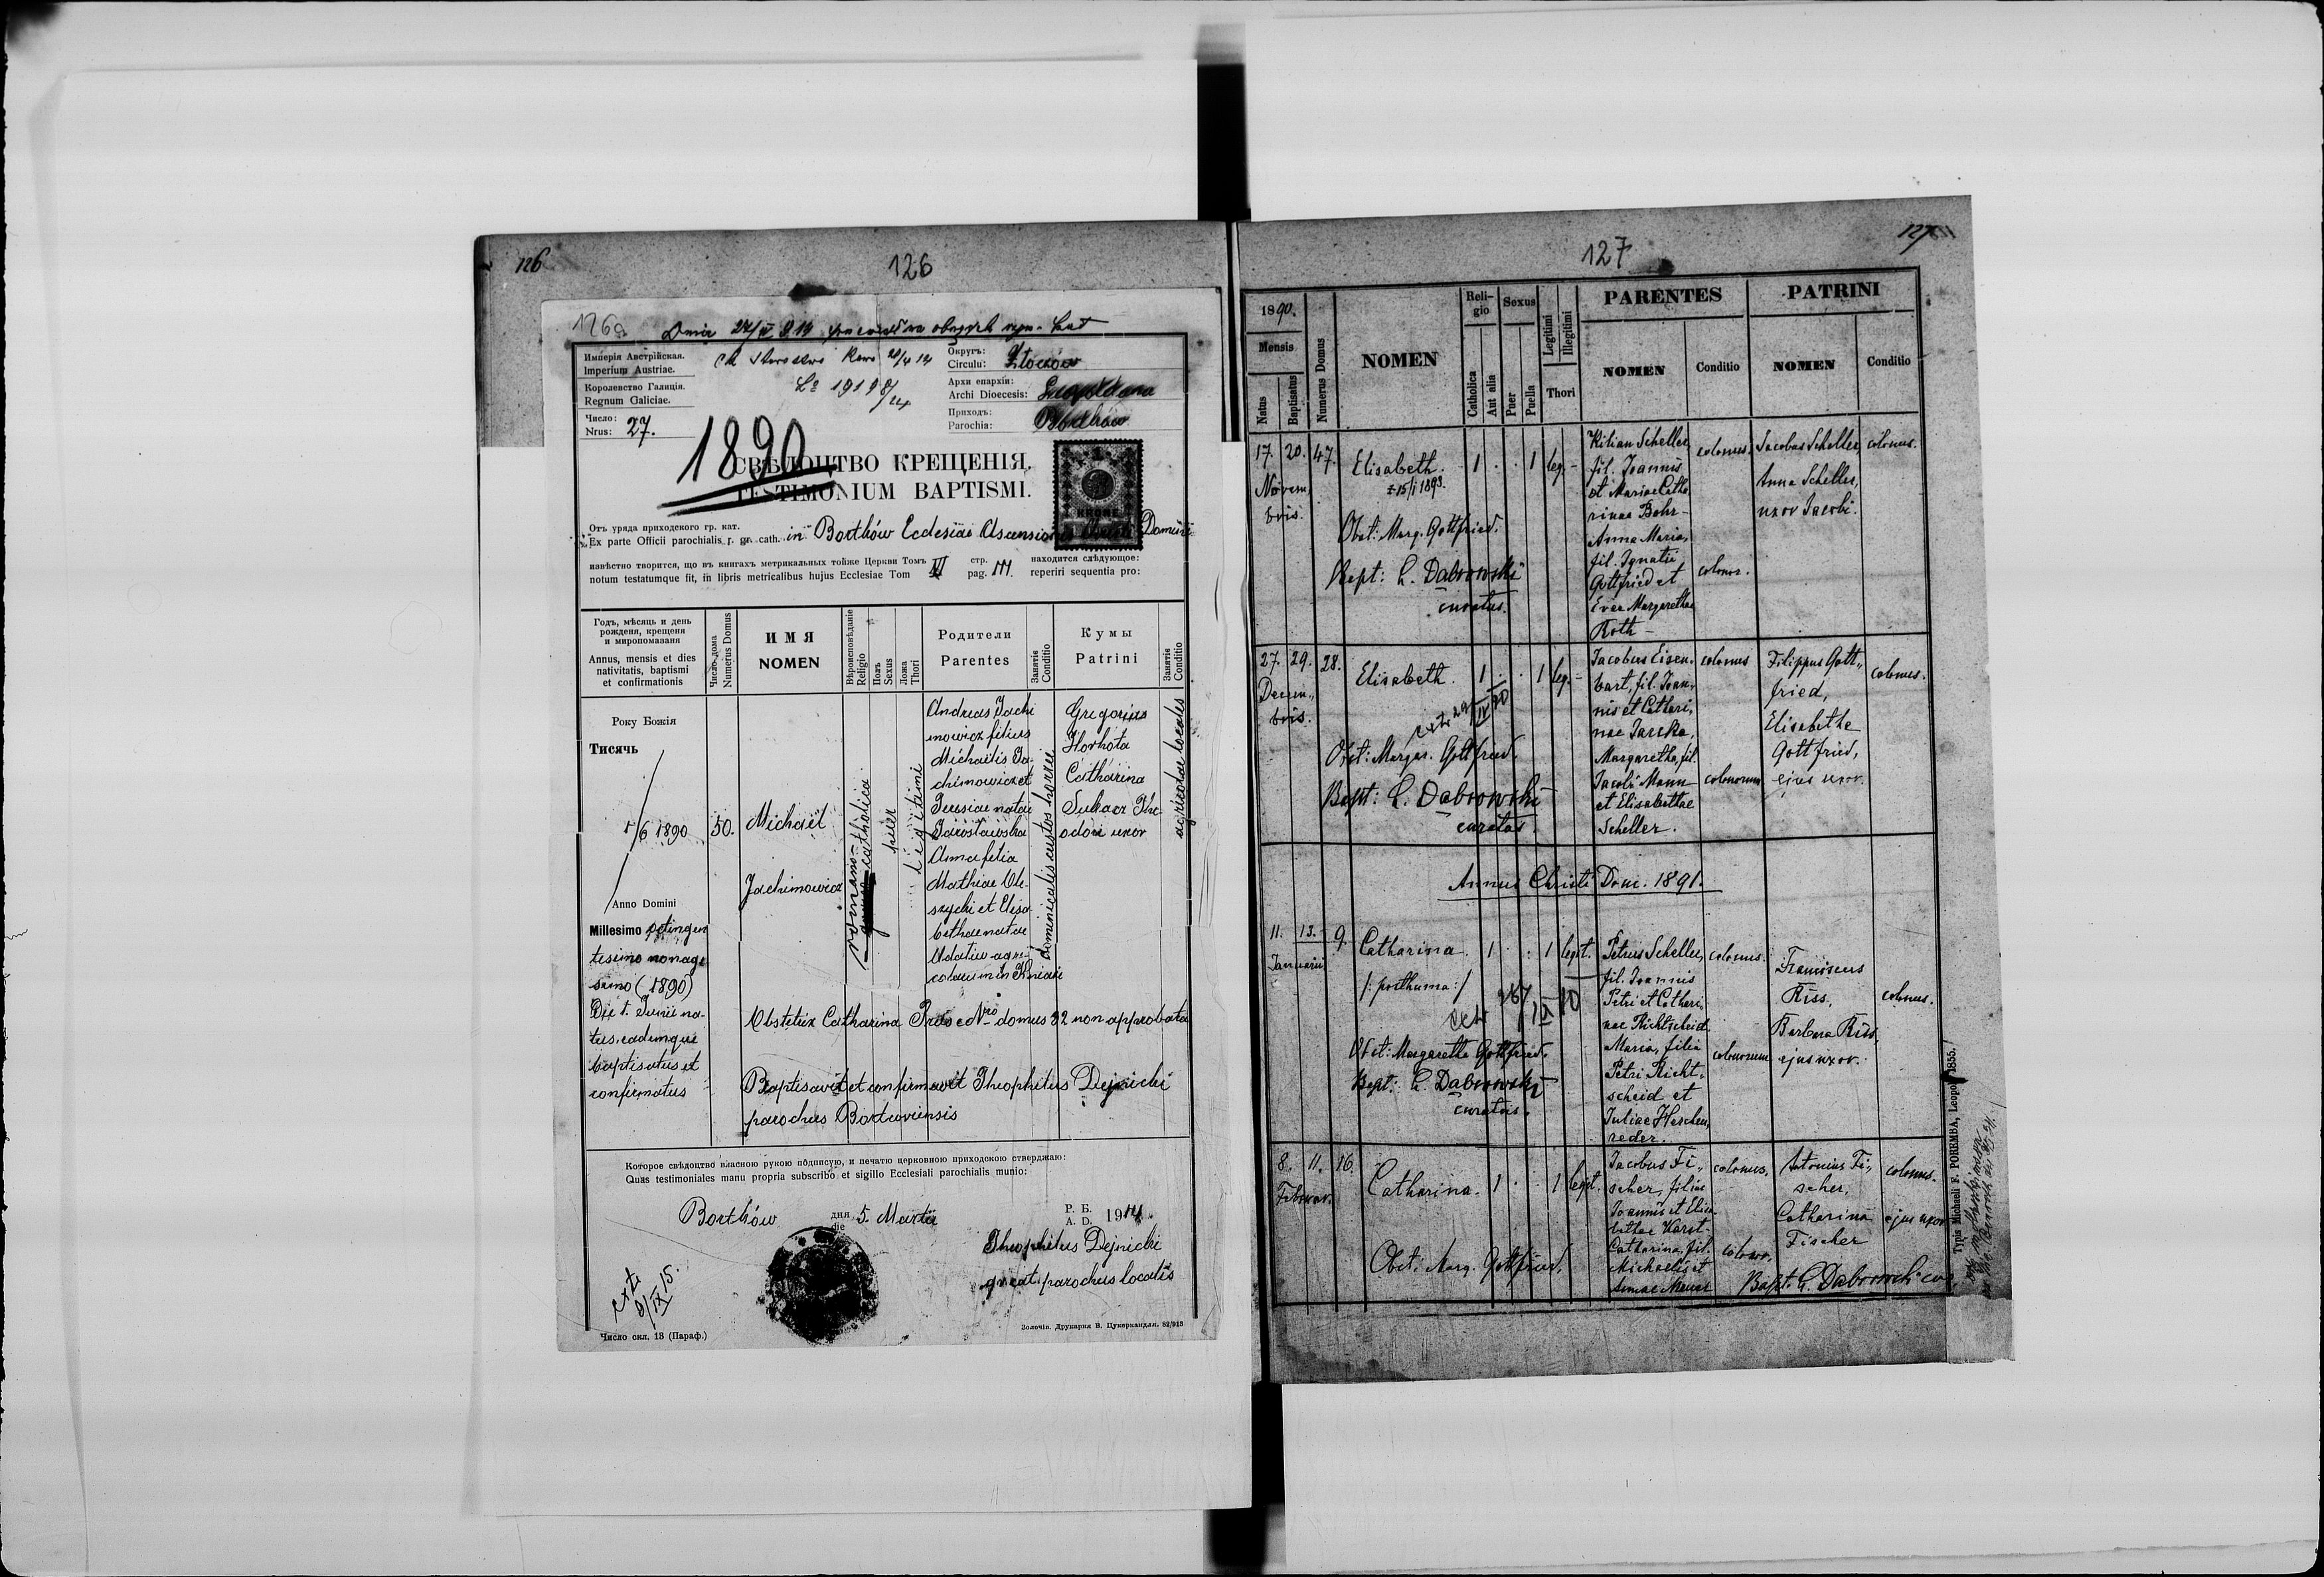 126
126
126a
Имперія Австрійская.
Imperium Austriae.
Королевство Галиція.
Regnum Galiciae.
Число:
Nrus: 27.
Округъ:
Circulu: Złoczów
Архи епархія:
Archi Dioecesis:
Приходъ:
Parochia:
1890
СВѢДОЦТВО КРЕЩЕНІЯ.
TESTIMONIUM BAPTISMI.
KRONE
Отъ уряда приходского гр. кат.
Ex parte Officii parochialis r. gr. cath. in Bortków Ecclesiae Ascensionis Christi Domini
извѣстно творится, що въ книгахъ метрикальныхъ тойже Церкви Томъ VI стр. находится слѣдующое:
notum testatumque fit, in libris metricalibus hujus Ecclesiae Tom pag. 111. reperiri sequentia pro:
Годъ, мѣсяць и день
рожденя, крещеня
и миропомазаня
Annus, mensis et dies
nativitatis, baptismi
et confirmationis
Число дома
Numerus Domus
ИМЯ
NOMEN
Вѣроисповѣданіе
Religio
Полъ
Sexus
Ложа
Thori
Родители
Parentes
Занятіе
Conditio
Кумы
Patrini
Занятіе
Conditio
Року Божія
Тисячь
1/6 1890
Anno Domini
Millesimo octingen
tesimo nonage
simo (1890)
Die 1. Junii na-
tus, eademque
baptisatus et
confirmatus
50.
Michaël
Jachimowicz
romano-
catholica
puer
legitimi
Andreas Jachi
mowicz filius
Michaëlis Ja-
chimowicz et
natae
Jarosławska
Anna filia
Mathiae Ole-
szycki et Elisa-
bethae natae
agri-
colarum in
dominicalis custos
Gregorius
Horhota
Catharina
The
odori uxor
agricolae locales
Obstetrix Catharina Nro domus 82 non approbata
Baptisavit et confirmavit Theophilus Dejnicki
parochus
Которое свѣдоцтво власною рукою подписую, и печатю церковною приходскою стверджаю:
Quas testimoniales manu propria subscribo et sigillo Ecclesiali parochialis munio:
Bortków дня die 5. Martii Р. Б. A. D. 1914.
Theophilus Dejnicki
gr. cat. parochus localis
Число скл. 13 (Параф.)
Золочів. Друкарня В. Цукеркандля. 82/913
127
127
1890.
Mensis
Natus
Baptisatus
Numerus Domus
NOMEN
Religio
Catholica
Aut alia
Sexus
Puer
Puella
Legitimi
Illegitimi
Thori
PARENTES
NOMEN
Conditio
PATRINI
NOMEN
Conditio
17. 20. 47.
Novem
bris.
Elisabeth. 1 . . 1 leg.
15/I 1893.
Obst: Marg. Gottfried.
Bapt: L. Dabrowski
curatus.
Kilian Scheller,
fil. Joannis
et Mariae Catha
rinae Bohr-
Anna Maria,
fil. Ignatii
Gottfried et
Evae Margarethae
Roth -
colonus.
colonor.
Jacobus Scheller,
Anna Scheller,
uxor Jacobi.
colonus.
27. 29. 28.
Decem
bris.
Elisabeth. 1 . . 1 leg.
Obst: Margar. Gottfried.
Bapt: L. Dabrowski
curatus.
Jacobus Eisen-
bart, fil. Joan-
nis et Cathari-
nae
Margaretha, fil.
Jacobi Mann
et Elisabethae
Scheller.
colonus
colonorum
Filippus Gott-
fried,
Elisabetha
Gottfried,
ejus uxor.
colonus.
Annus Christi Dom. 1891.
11. 13. 9.
Januarii
Catharina. 1 . . 1 legit.
/: posthuma :/
Obst: Margaretha Gottfried.
Bapt: L. Dabrowski
curatus.
Petrus Scheller,
fil. Joannis
Petri et Cathari-
nae Richtscheid
Maria, filia
Petri Richt-
scheid et
Juliae Heschen
reder.
colonus.
colonorum
Franciscus
Riss,
Barbara Riss,
ejus uxor.
colonus.
8. 11. 16.
Februar.
Catharina. 1 . . 1 legit.
Obst: Marg. Gottfried.
Jacobus Fi-
scher, filius
Joannis et Elisa
bethae Karst-
Catharina, fil.
Michaelis et
Annae
colonus.
colonor.
Antonius Fi-
scher,
Catharina
Fischer
colonus.
ejus uxor
Bapt. L. Dabrowski cur.
Typis Michaeli F. POREMBA, Leopol 1855.